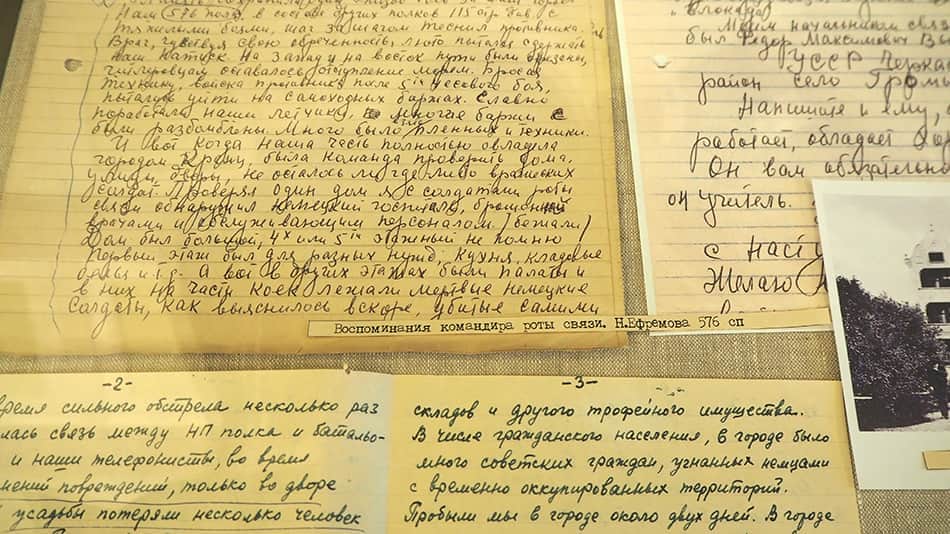 Нам 576 полк, в составе других полков 115 стр. див. с
тяжелыми боями, шаг за шагом теснил противника.
Враг, чувствуя свою обреченность, люто пытался сдержать
наш натиск. На запад и на восток пути были отрезаны,
оставалось отступление морем. Бросая
технику, войска противника после 5ти часового боя,
пытались уйти на самоходных баржах. Славно
поработали наши летчики, многие баржи
были разбомблены. Много было пленных и техники.
И вот когда наша часть полностью овладела
городом Кранц, была команда проверить дома,
улицы, дворы, не осталось ли где либо вражеских
солдат. Проверяя один дом я с солдатами роты
связи обнаружил немецкий госпиталь, брошенный
врачами и обслуживающим персоналом /бежали/
Дом был большой, 4х или 5ти этажный не помню
Первый этаж был для разных нужд, кухня, кладовые
белья и т.д. А вот в других этажах были палаты и
в них на части коек лежали мертвые немецкие
солдаты, как выяснилось вскоре, убитые самими
блокада
Моим начальником связи
был Федор Максимович
УССР
район село
Напишите и ему,
работает, обладает
Он вам обязательно
он учитель.
с
Желаю
Воспоминания командира роты связи. Н.Ефремова 576 сп
-2-
время сильного обстрела несколько раз
лась связь между НП полка и баталью-
и наши телефонисты, во время
нений повреждений, только во дворе
усадьбы потеряли несколько человек
-3-
складов и другого трофейного имущества.
В числе гражданского населения, в городе было
много советских граждан, угнанных немцами
с временно оккупированных территорий.
Пробыли мы в городе около двух дней. В городе